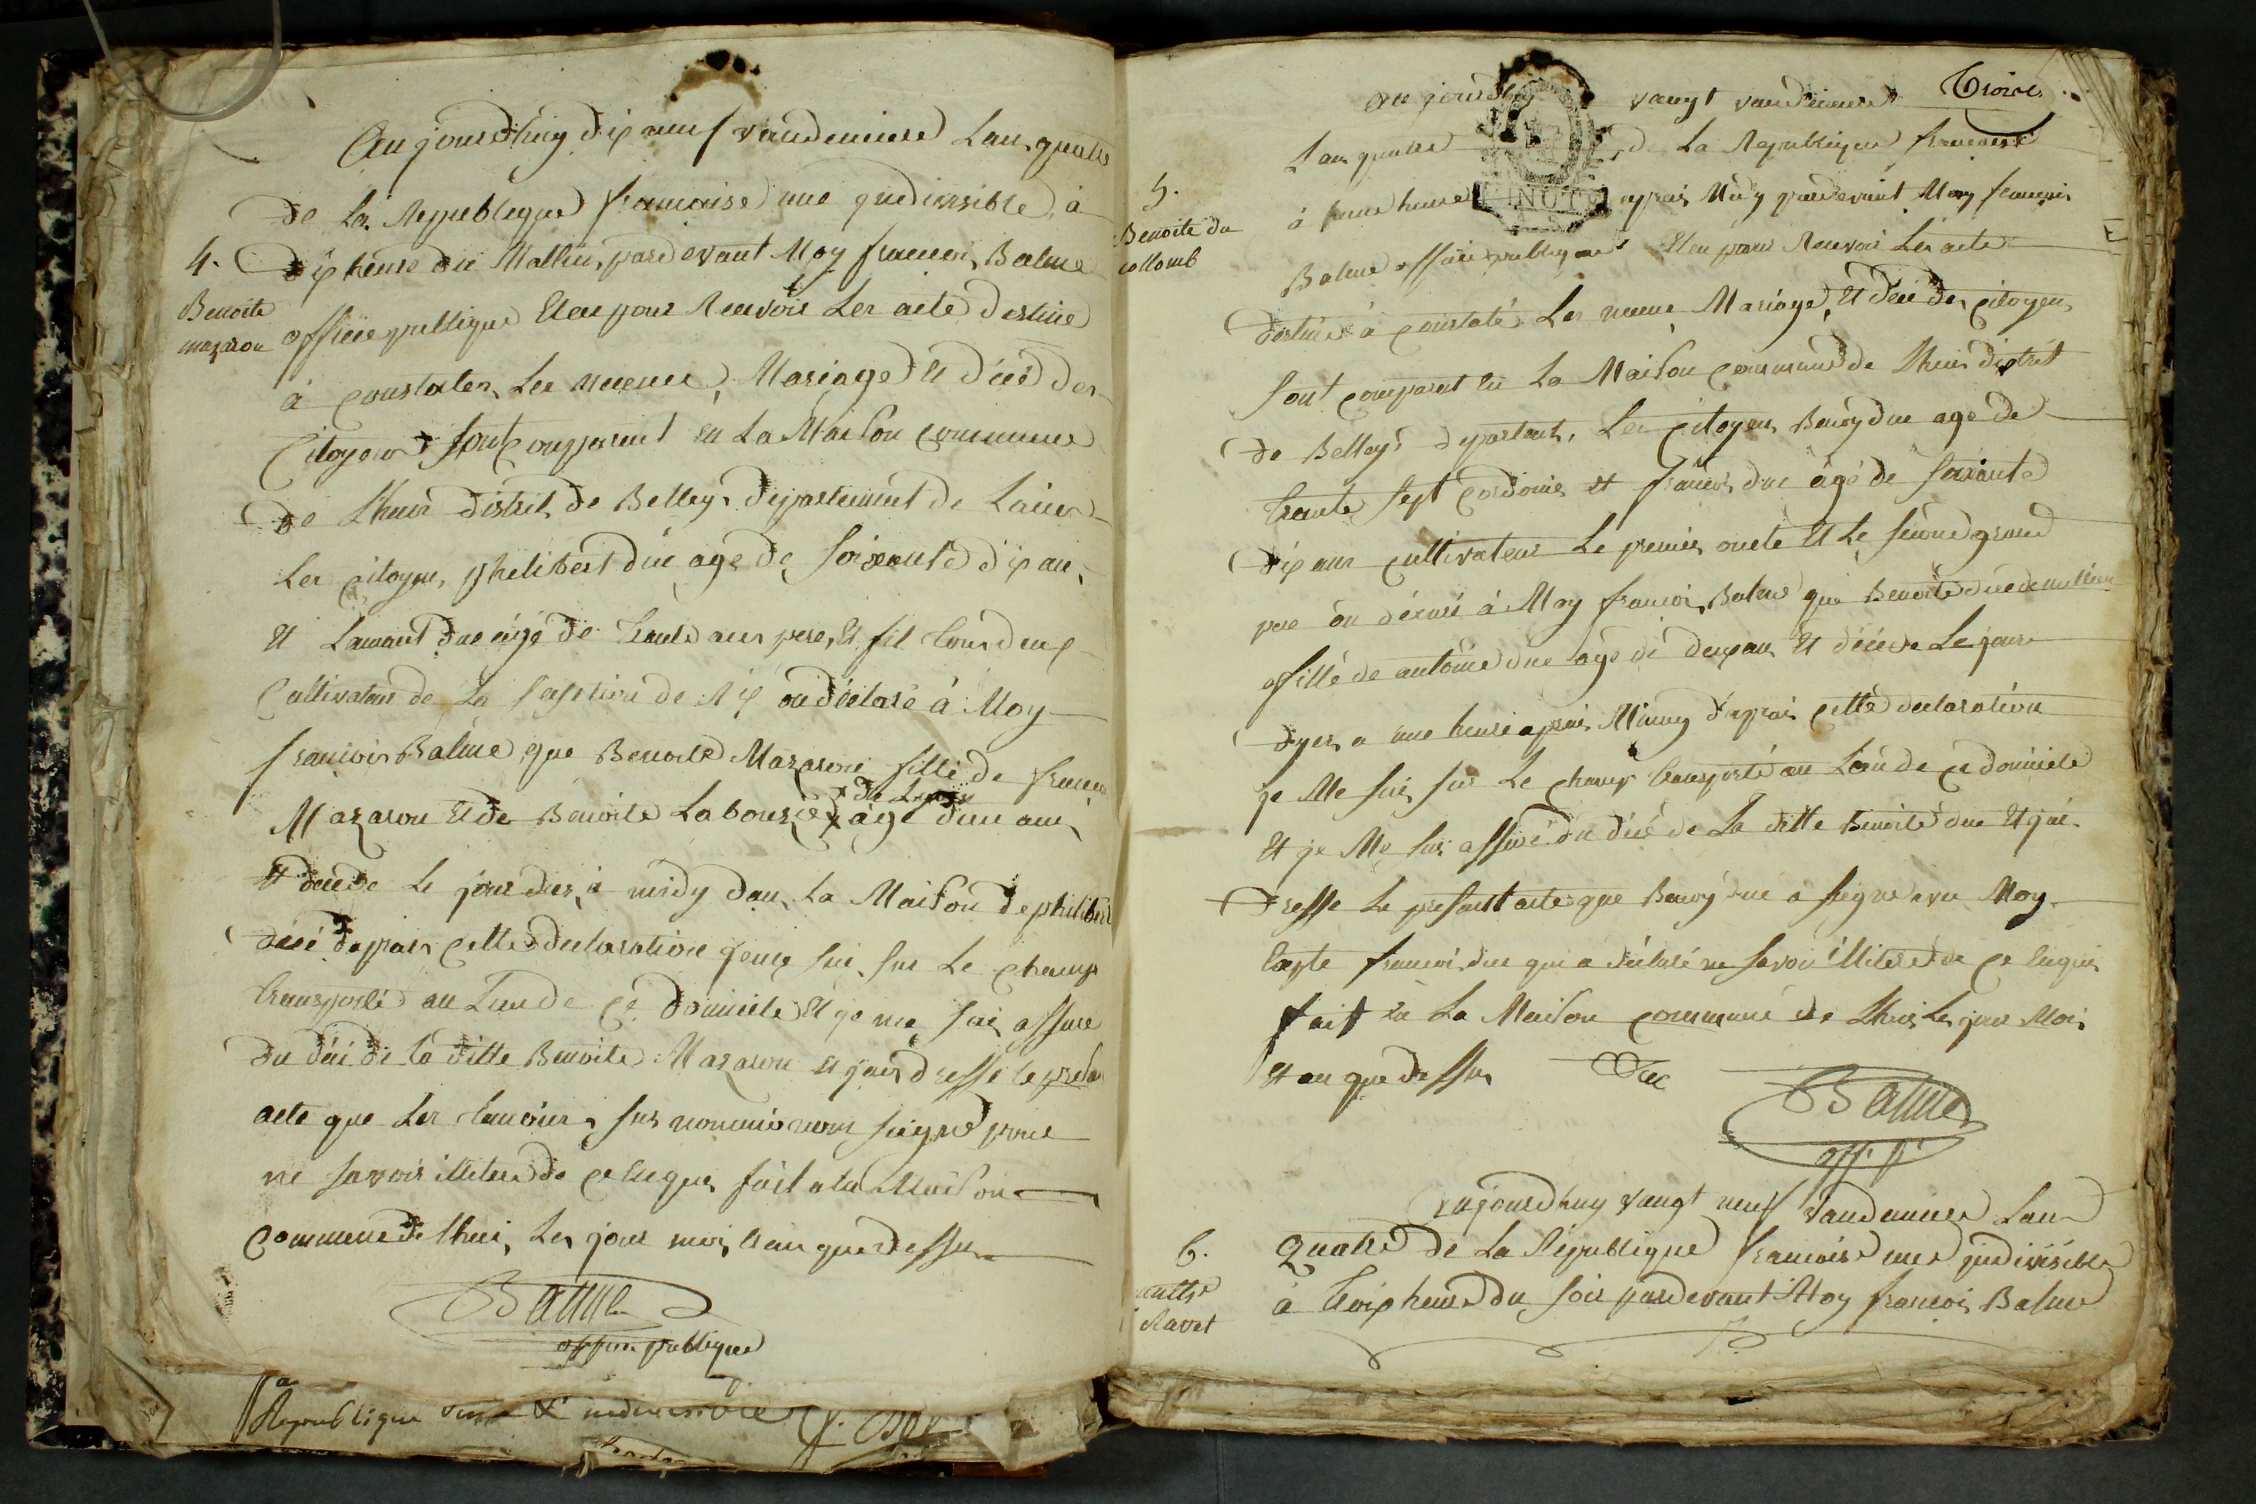 Aujourdhuy dix neuf vandemiere Lan quatre
de La Republique francoise une indivisible, à
4. dix heure du Mattin, pardevant Moy francois Balme
Benoite mazaron
officie publique Eleu pour Recevoir Les acte destiné
à constater Les Mariage et décé des
Citoyens sont comparut en La Maison commune
de Lhuis distrit de Belley departement de Lain
Les citoyens philibert duc age de soixante dix an,
et Laurant duc âgé de trante ans pere et fil tous deux
Cultivateur de La de Rix on déclaré à Moy
francois Balme que Benoite Mazaron fille de
Mazaron et de Benoite Labourie age d'un an
de Lyon
et decede Le jour dier, à midy dan La Maison de philibert
duc dapres cette declaration je me sui sur Le champ
transporté au Lieu de ce domicile et je me sui assure
du décé de la ditte Benoite Mazaron et jai dressé le
acte que Les temoins sus nommé nont signé pour
ne savoir de ce enquis fait a la Maison
commune de lhuis Les jour mois et an que dessus
Balme
officie publique
Republique une et indivisible
Aujourdhuy vangt vandemiere Troire
Lan quatre de La Republique francoise
5.
Benoite du collomb
à une heure apres Midy pardevant Moy francois
Balme officie publique Eleu pour Recevoir Les acte
destiné à constaté Les Mariage, et décé des citoyens
sont comparut en La Maison commune de Lhuis distrit
de Belley departement, Les citoyens Benoy duc age de
trante sept cordonie et francois duc âgé de soixante
dix ans cultivateur Le premier oncle et Le second grand
pere on déclaré à Moy francois Balme que Benoite duc
fille de antoine duc agé de deux an et décédé Le jour
dyer a une heure apres Midy d'apres cette declaration
je Me suis sur Le champ transporté au Lieu de ce domicile
et je Me sui assuré du décé de La ditte Benoite duc et jai
dressé Le presant acte que Benoy duc a signé avec Moy
francois duc qui a déclaré ne savoir de ce enquis
fait en La Maison commune de Lhuis Les jour Mois
et an que dessus Duc
Balme
off. p.
aujourdhuy vangt neuf vandemiere Lan
6.
quatre de La République francoise une indivisible
Ravet
à troix heure du soir pardevant Moy francois Balme